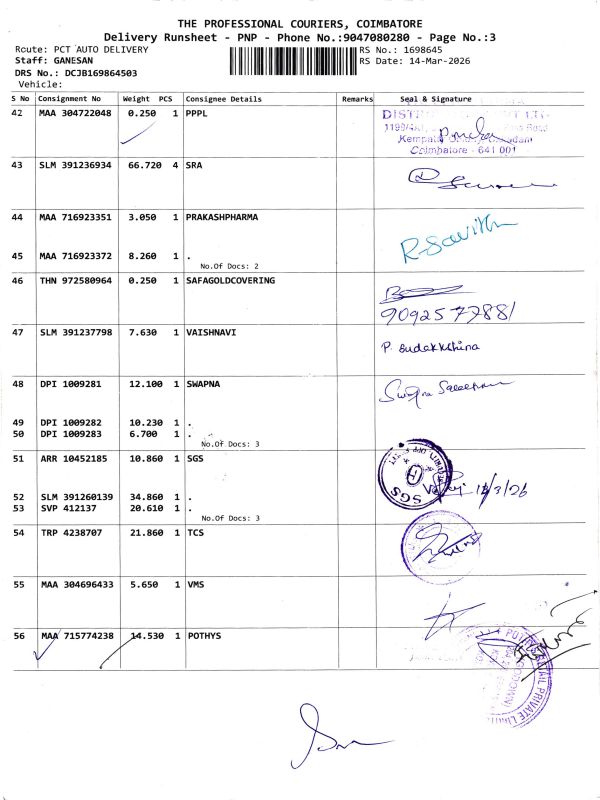 THE PROFESSIONAL COURIERS, COIMBATORE
Delivery Runsheet - PNP - Phone No.:9047080280 - Page No.:3
Route: PCT AUTO DELIVERY RS No.: 1698645
Staff: GANESAN RS Date: 14-Mar-2026
DRS No.: DCJB169864503
Vehicle:
S No Consignment No Weight PCS Consignee Details Remarks Seal & Signature
42 MAA 304722048 0.250 1 PPPL
Kempatty
Coimbatore - 641 001
43 SLM 391236934 66.720 4 SRA
44 MAA 716923351 3.050 1 PRAKASHPHARMA
R. Savitha
45 MAA 716923372 8.260 1 .
No.Of Docs: 2
46 THN 972580964 0.250 1 SAFAGOLDCOVERING
9092577881
47 SLM 391237798 7.630 1 VAISHNAVI
P. Sudakkshina
48 DPI 1009281 12.100 1 SWAPNA
Swapna
49 DPI 1009282 10.230 1 .
50 DPI 1009283 6.700 1 .
No.Of Docs: 3
51 ARR 10452185 10.860 1 SGS
SGS
52 SLM 391260139 34.860 1 .
53 SVP 412137 20.610 1 .
No.Of Docs: 3
54 TRP 4238707 21.860 1 TCS
55 MAA 304696433 5.650 1 VMS
56 MAA 715774238 14.530 1 POTHYS
POTHYS RETAIL PRIVATE LIMITED